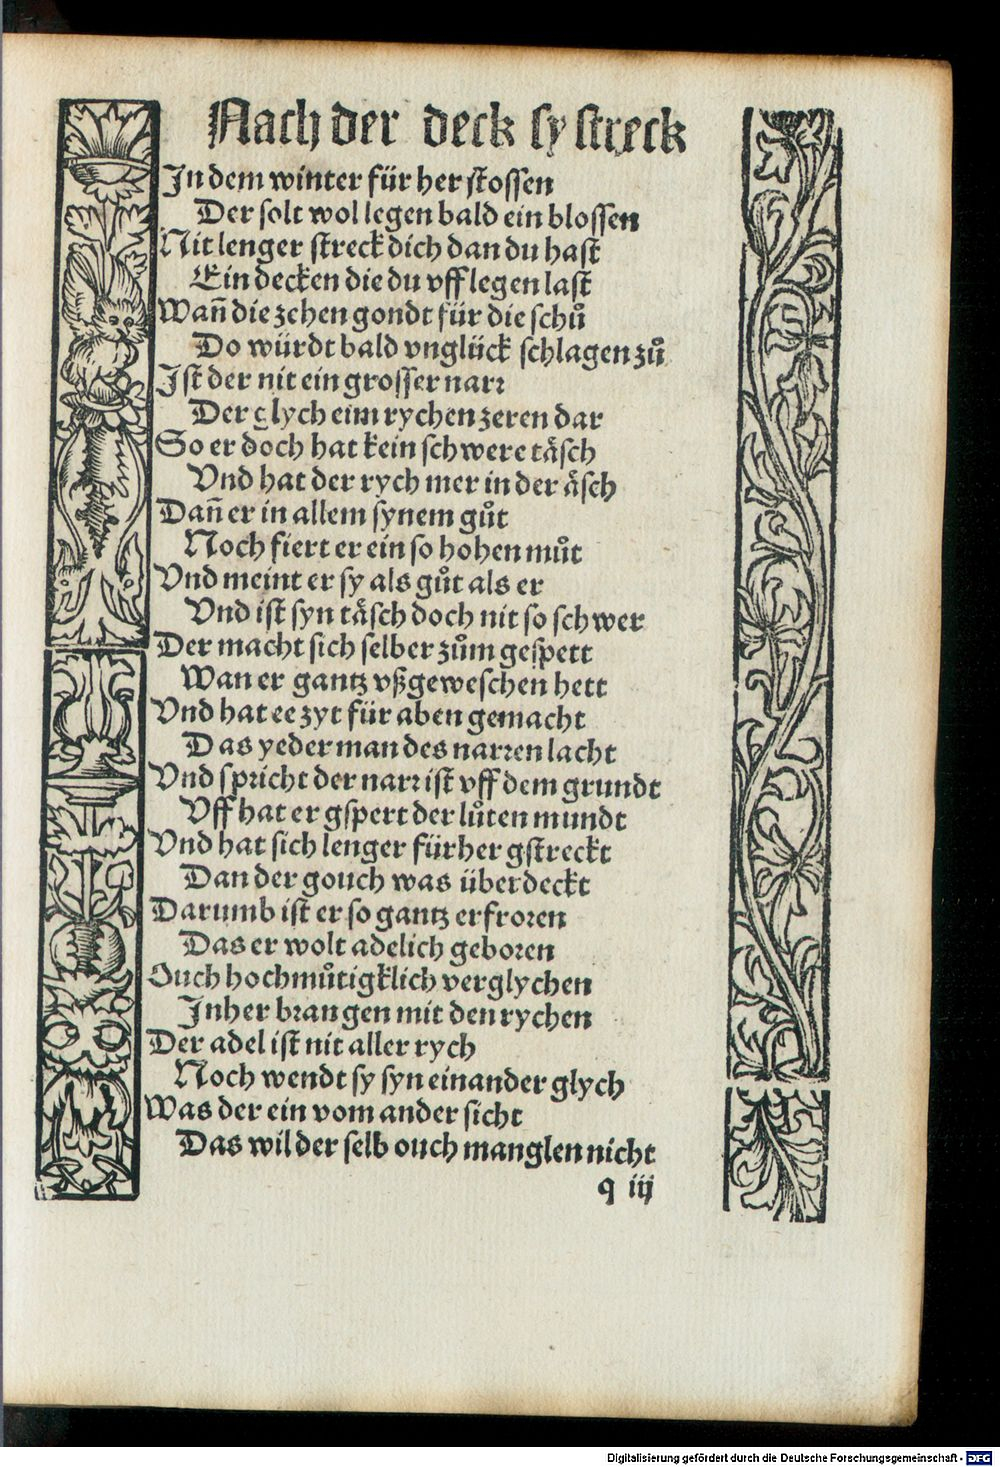 Nach der deck sy streck
In dem winter für her stossen
Der solt wol legen bald ein blossen
Nit lenger streck dich dan du hast
Ein decken die du vff legen last
Wañ die zehen gondt für die schů
Do würdt bald vnglück schlagen zů
Ist der nit ein grosser narr
Der glych eim rychen zeren dar
So er doch hat kein schwere täsch
Vnd hat der rych mer in der äsch
Dañ er in allem synem gůt
Noch fiert er ein so hohen můt
Vnd meint er sy als gůt als er
Vnd ist syn täsch doch nit so schwer
Der macht sich selber zům gespett
Wan er gantz vßgeweschen hett
Vnd hat ee zyt für aben gemacht
Das yederman des narren lacht
Vnd spricht der narr ist vff dem grundt
Vff hat er gspert der lůten mundt
Vnd hat sich lenger fürher gstreckt
Dan der gouch was überdeckt
Darumb ist er so gantz erfroren
Das er wolt adelich geboren
Ouch hochmůtigklich verglychen
Inher brangen mit den rychen
Der adel ist nit aller rych
Noch wendt sy syn einander glych
Was der ein vom ander sicht
Das wil der selb ouch manglen nicht
q iij
Digitalisierung gefördert durch die Deutsche Forschungsgemeinschaft - DFG